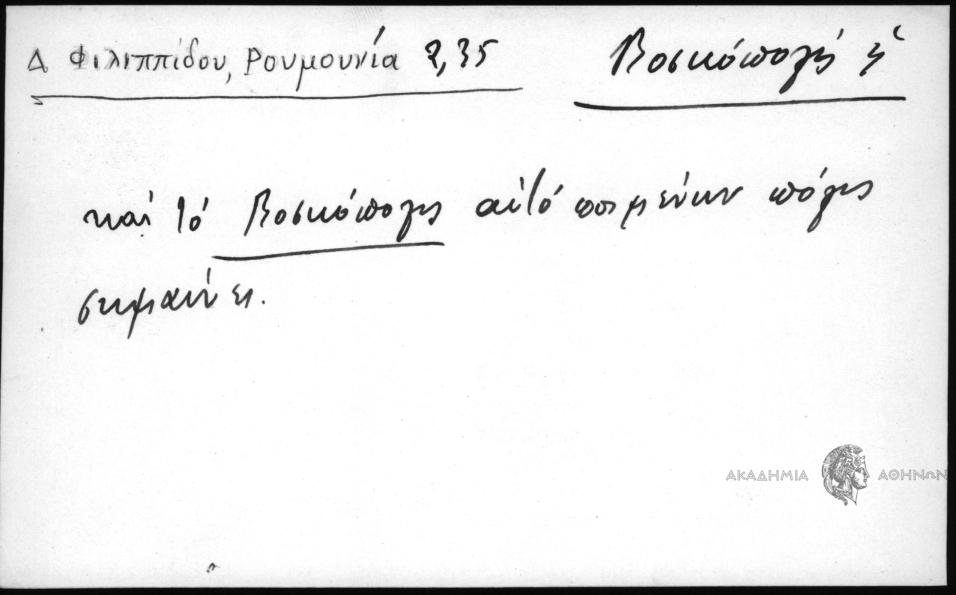 Δ Φιλιππίδου, Ρουμουνία 2,35
Βοσκόπολις ἡ
καί τό Βοσκόπολις αὐτό ποιμένων πόλις
σημαίνει.
ΑΚΑΔΗΜΙΑ ΑΘΗΝΩΝ